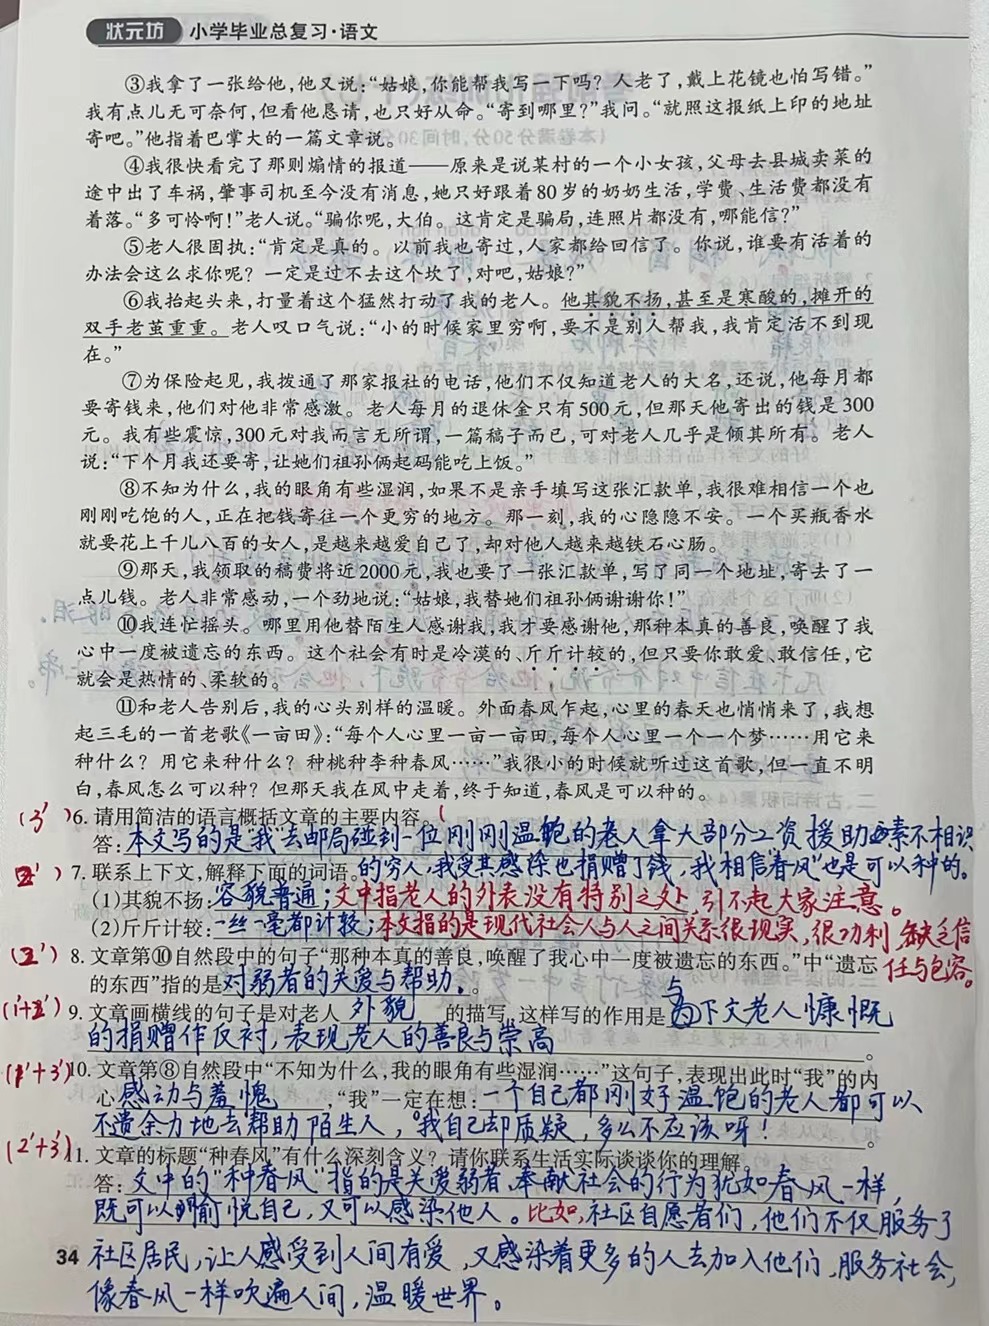 状元坊 小学毕业总复习·语文
③我拿了一张给他,他又说:“姑娘,你能帮我写一下吗?人老了,戴上花镜也怕写错。”
我有点儿无可奈何,但看他恳请,也只好从命。“寄到哪里?”我问。“就照这报纸上印的地址
寄吧。”他指着巴掌大的一篇文章说。
④我很快看完了那则煽情的报道——原来是说某村的一个小女孩,父母去县城卖菜的
途中出了车祸,肇事司机至今没有消息,她只好跟着80岁的奶奶生活,学费、生活费都没有
着落。“多可怜啊!”老人说。“骗你呢,大伯。这肯定是骗局,连照片都没有,哪能信?”
⑤老人很固执:“肯定是真的。以前我也寄过,人家都给回信了。你说,谁要有活着的
办法会这么求你呢?一定是过不去这个坎了,对吧,姑娘?”
⑥我抬起头来,打量着这个猛然打动了我的老人。他其貌不扬,甚至是寒酸的,摊开的
双手老茧重重。老人叹口气说:“小的时候家里穷啊,要不是别人帮我,我肯定活不到现
在。”
⑦为保险起见,我拨通了那家报社的电话,他们不仅知道老人的大名,还说,他每月都
要寄钱来,他们对他非常感激。老人每月的退休金只有500元,但那天他寄出的钱是300
元。我有些震惊,300元对我而言无所谓,一篇稿子而已,可对老人几乎是倾其所有。老人
说:“下个月我还要寄,让她们祖孙俩起码能吃上饭。”
⑧不知为什么,我的眼角有些湿润,如果不是亲手填写这张汇款单,我很难相信一个也
刚刚吃饱的人,正在把钱寄往一个更穷的地方。那一刻,我的心隐隐不安。一个买瓶香水
就要花上千儿八百的女人,是越来越爱自己了,却对他人越来越铁石心肠。
⑨那天,我领取的稿费将近2000元,我也要了一张汇款单,写了同一个地址,寄去了一
点儿钱。老人非常感动,一个劲地说:“姑娘,我替她们祖孙俩谢谢你!”
⑩我连忙摇头。哪里用他替陌生人感谢我,我才要感谢他,那种本真的善良,唤醒了我
心中一度被遗忘的东西。这个社会有时是冷漠的、斤斤计较的,但只要你敢爱、敢信任,它
就会是热情的、柔软的。
⑪和老人告别后,我的心头别样的温暖。外面春风乍起,心里的春天也悄悄来了,我想
起三毛的一首老歌《一亩田》:“每个人心里一亩一亩田,每个人心里一个一个梦……用它来
种什么?用它来种什么?种桃种李种春风……”我很小的时候就听过这首歌,但一直不明
白,春风怎么可以种?但那天我在风中走着,终于知道,春风是可以种的。
(3′)6. 请用简洁的语言概括文章的主要内容。
答:本文写的是“我”去邮局碰到一位刚刚温饱的老人拿大部分工资援助素不相识
的穷人,我受其感染也捐赠了钱,我相信“春风”也是可以种的。
7. 联系上下文,解释下面的词语。
(1)其貌不扬:容貌普通;文中指老人的外表没有特别之处,引不起大家注意。
(2)斤斤计较:一丝一毫都计较;本文指的是现代社会人与人之间关系很现实,很功利,缺乏信
任与包容。
8. 文章第⑩自然段中的句子“那种本真的善良,唤醒了我心中一度被遗忘的东西。”中“遗忘
的东西”指的是对弱者的关爱与帮助。
9. 文章画横线的句子是对老人外貌的描写,这样写的作用是与下文老人慷慨
的捐赠作反衬,表现老人的善良与崇高。
(1′+3′)10. 文章第⑧自然段中“不知为什么,我的眼角有些湿润……”这句子,表现出此时“我”的内
心感动与羞愧,“我”一定在想:一个自己都刚好温饱的老人都可以
不遗余力地去帮助陌生人,我自己却质疑,多么不应该呀!。
(2′+3′)11. 文章的标题“种春风”有什么深刻含义?请你联系生活实际谈谈你的理解。
答:文中的“种春风”指的是关爱弱者,奉献社会的行为犹如春风一样,
既可以愉悦自己,又可以感染他人。比如,社区自愿者们,他们不仅服务了
社区居民,让人感受到人间有爱,又感染着更多的人去加入他们,服务社会,
像春风一样吹遍人间,温暖世界。
34